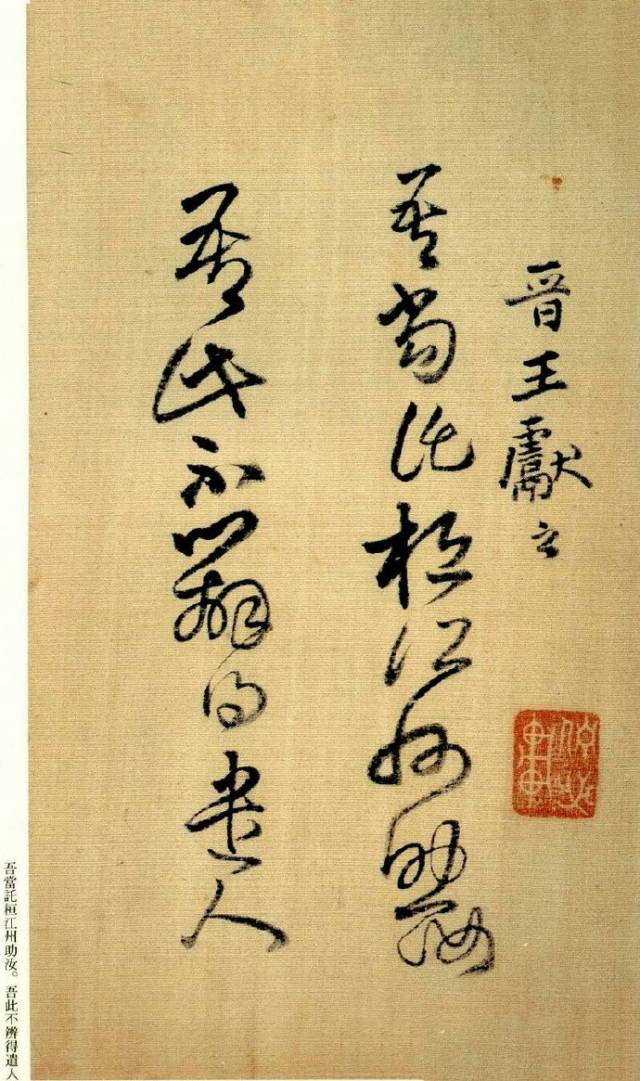 晋王獻之
吾當託桓江州助汝
吾此不辦得遣人
吾當託桓江州助汝。吾此不辨得遣人